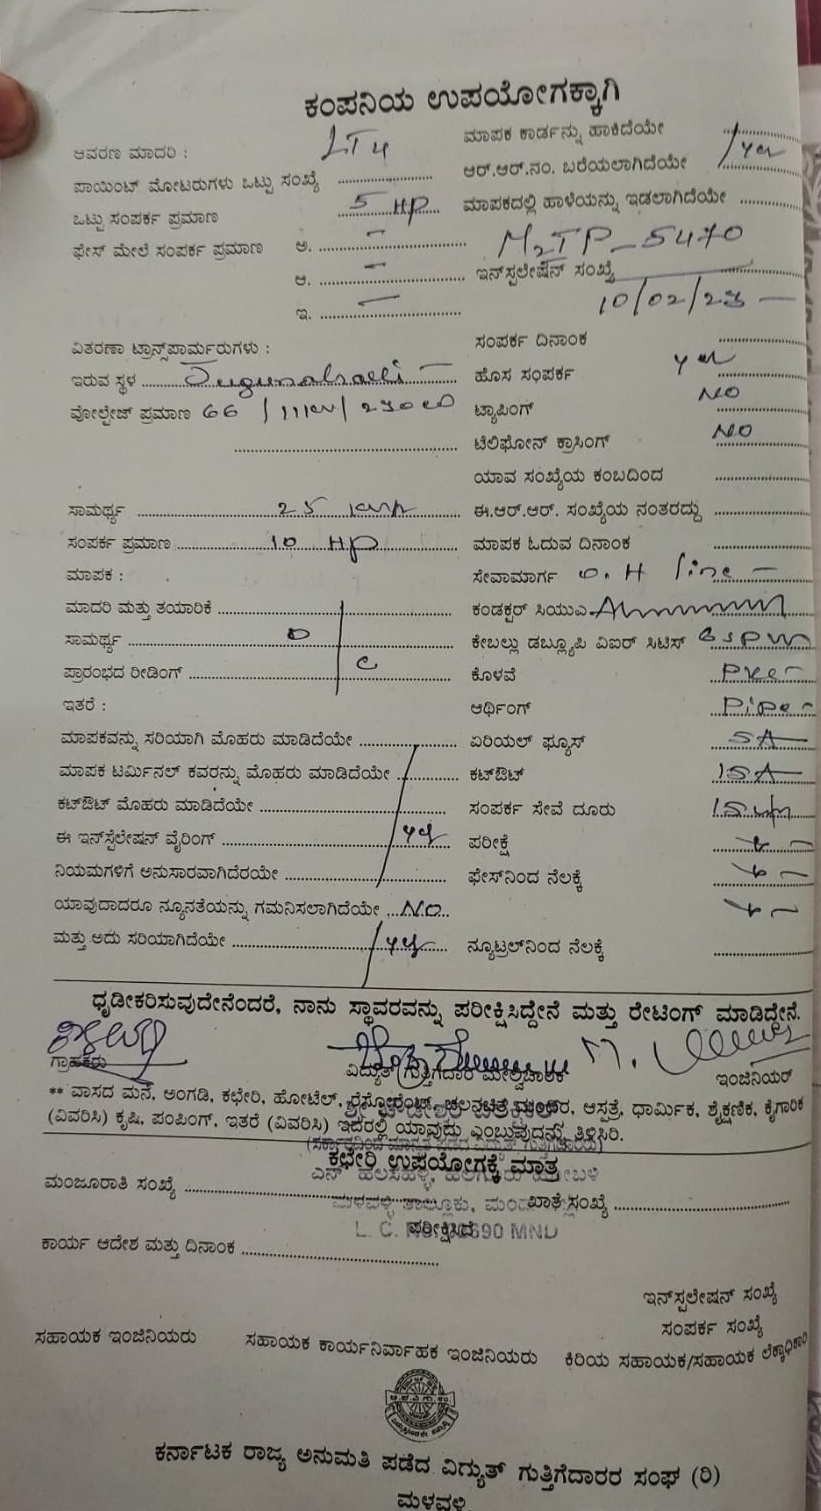 ಕಂಪನಿಯ ಉಪಯೋಗಕ್ಕಾಗಿ
ಆವರಣ ಮಾದರಿ : LT4
ಪಾಯಿಂಟ್ ಮೋಟರುಗಳು ಒಟ್ಟು ಸಂಖ್ಯೆ
ಒಟ್ಟು ಸಂಪರ್ಕ ಪ್ರಮಾಣ 5 HP
ಫೇಸ್ ಮೇಲೆ ಸಂಪರ್ಕ ಪ್ರಮಾಣ ಅ. –
ಆ. –
ಇ. –
ಮಾಪಕ ಕಾರ್ಡನ್ನು ಹಾಕಿದೆಯೇ
ಆರ್.ಆರ್.ನಂ. ಬರೆಯಲಾಗಿದೆಯೇ yes
ಮಾಪಕದಲ್ಲಿ ಹಾಳೆಯನ್ನು ಇಡಲಾಗಿದೆಯೇ
M2TP-5470
ಇನ್‌ಸ್ಟಲೇಷನ್ ಸಂಖ್ಯೆ
10/02/23
ವಿತರಣಾ ಟ್ರಾನ್ಸ್‌ಪಾರ್ಮರುಗಳು :
ಇರುವ ಸ್ಥಳ
ವೋಲ್ಟೇಜ್ ಪ್ರಮಾಣ 66 / 11KV /
ಸಾಮರ್ಥ್ಯ 25
ಸಂಪರ್ಕ ಪ್ರಮಾಣ 10 HP
ಮಾಪಕ :
ಮಾದರಿ ಮತ್ತು ತಯಾರಿಕೆ
ಸಾಮರ್ಥ್ಯ D
ಪ್ರಾರಂಭದ ರೀಡಿಂಗ್ C
ಇತರೆ :
ಮಾಪಕವನ್ನು ಸರಿಯಾಗಿ ಮೊಹರು ಮಾಡಿದೆಯೇ
ಮಾಪಕ ಟರ್ಮಿನಲ್ ಕವರನ್ನು ಮೊಹರು ಮಾಡಿದೆಯೇ
ಕಟ್‌ಔಟ್ ಮೊಹರು ಮಾಡಿದೆಯೇ
ಈ ಇನ್‌ಸ್ಟಲೇಷನ್ ವೈರಿಂಗ್ yes
ನಿಯಮಗಳಿಗೆ ಅನುಸಾರವಾಗಿದೆರಯೇ
ಯಾವುದಾದರೂ ನ್ಯೂನತೆಯನ್ನು ಗಮನಿಸಲಾಗಿದೆಯೇ No
ಮತ್ತು ಅದು ಸರಿಯಾಗಿದೆಯೇ yes
ಸಂಪರ್ಕ ದಿನಾಂಕ
ಹೊಸ ಸಂಪರ್ಕ yes
ಟ್ಯಾಪಿಂಗ್ NO
ಟೆಲಿಫೋನ್ ಕ್ರಾಸಿಂಗ್ NO
ಯಾವ ಸಂಖ್ಯೆಯ ಕಂಬದಿಂದ
ಈ.ಆರ್.ಆರ್. ಸಂಖ್ಯೆಯ ನಂತರದ್ದು
ಮಾಪಕ ಓದುವ ದಿನಾಂಕ
ಸೇವಾಮಾರ್ಗ O.H line
ಕಂಡಕ್ಟರ್ ಸಿಯುಎ
ಕೇಬಲ್ಲು ಡಬ್ಲ್ಯೂಪಿ ವಿಐರ್ ಸಿಟಿಸ್
ಕೊಳವೆ
ಆರ್ಥಿಂಗ್ Pipe
ಏರಿಯಲ್ ಫ್ಯೂಸ್ 5A
ಕಟ್‌ಔಟ್ 15A
ಸಂಪರ್ಕ ಸೇವೆ ದೂರು
ಪರೀಕ್ಷೆ
ಫೇಸ್‌ನಿಂದ ನೆಲಕ್ಕೆ
ನ್ಯೂಟ್ರಲ್‌ನಿಂದ ನೆಲಕ್ಕೆ
ಧೃಡೀಕರಿಸುವುದೇನೆಂದರೆ, ನಾನು ಸ್ಥಾವರವನ್ನು ಪರೀಕ್ಷಿಸಿದ್ದೇನೆ ಮತ್ತು ರೇಟಿಂಗ್ ಮಾಡಿದ್ದೇನೆ.
ಗ್ರಾಹಕರು ವಿದ್ಯುತ್ ಗುತ್ತಿಗೆದಾರ ಮೇಲ್ವಿಚಾರಕ ಇಂಜಿನಿಯರ್
** ವಾಸದ ಮನೆ, ಅಂಗಡಿ, ಕಛೇರಿ, ಹೋಟೆಲ್, ರೆಸ್ಟೋರೆಂಟ್, ಚಲನಚಿತ್ರ ಮಂದಿರ, ಆಸ್ಪತ್ರೆ, ಧಾರ್ಮಿಕ, ಶೈಕ್ಷಣಿಕ, ಕೈಗಾರಿಕ
(ವಿವರಿಸಿ) ಕೃಷಿ, ಪಂಪಿಂಗ್, ಇತರೆ (ವಿವರಿಸಿ) ಇದರಲ್ಲಿ ಯಾವುದು ಎಂಬುವುದನ್ನು ತಿಳಿಸಿರಿ.
ಕಛೇರಿ ಉಪಯೋಗಕ್ಕೆ ಮಾತ್ರ
ಮಂಜೂರಾತಿ ಸಂಖ್ಯೆ
ಖಾತೆ ಸಂಖ್ಯೆ
ಪರೀಕ್ಷಿಸಿದೆ
ಕಾರ್ಯ ಆದೇಶ ಮತ್ತು ದಿನಾಂಕ
ಇನ್‌ಸ್ಟಲೇಷನ್ ಸಂಖ್ಯೆ
ಸಂಪರ್ಕ ಸಂಖ್ಯೆ
ಸಹಾಯಕ ಇಂಜಿನಿಯರು ಸಹಾಯಕ ಕಾರ್ಯನಿರ್ವಾಹಕ ಇಂಜಿನಿಯರು ಕಿರಿಯ ಸಹಾಯಕ/ಸಹಾಯಕ ಲೆಕ್ಕಾಧಿಕಾರಿ
ಕರ್ನಾಟಕ ರಾಜ್ಯ ಅನುಮತಿ ಪಡೆದ ವಿದ್ಯುತ್ ಗುತ್ತಿಗೆದಾರರ ಸಂಘ (ರಿ)
ಮಳವಳ್ಳಿ